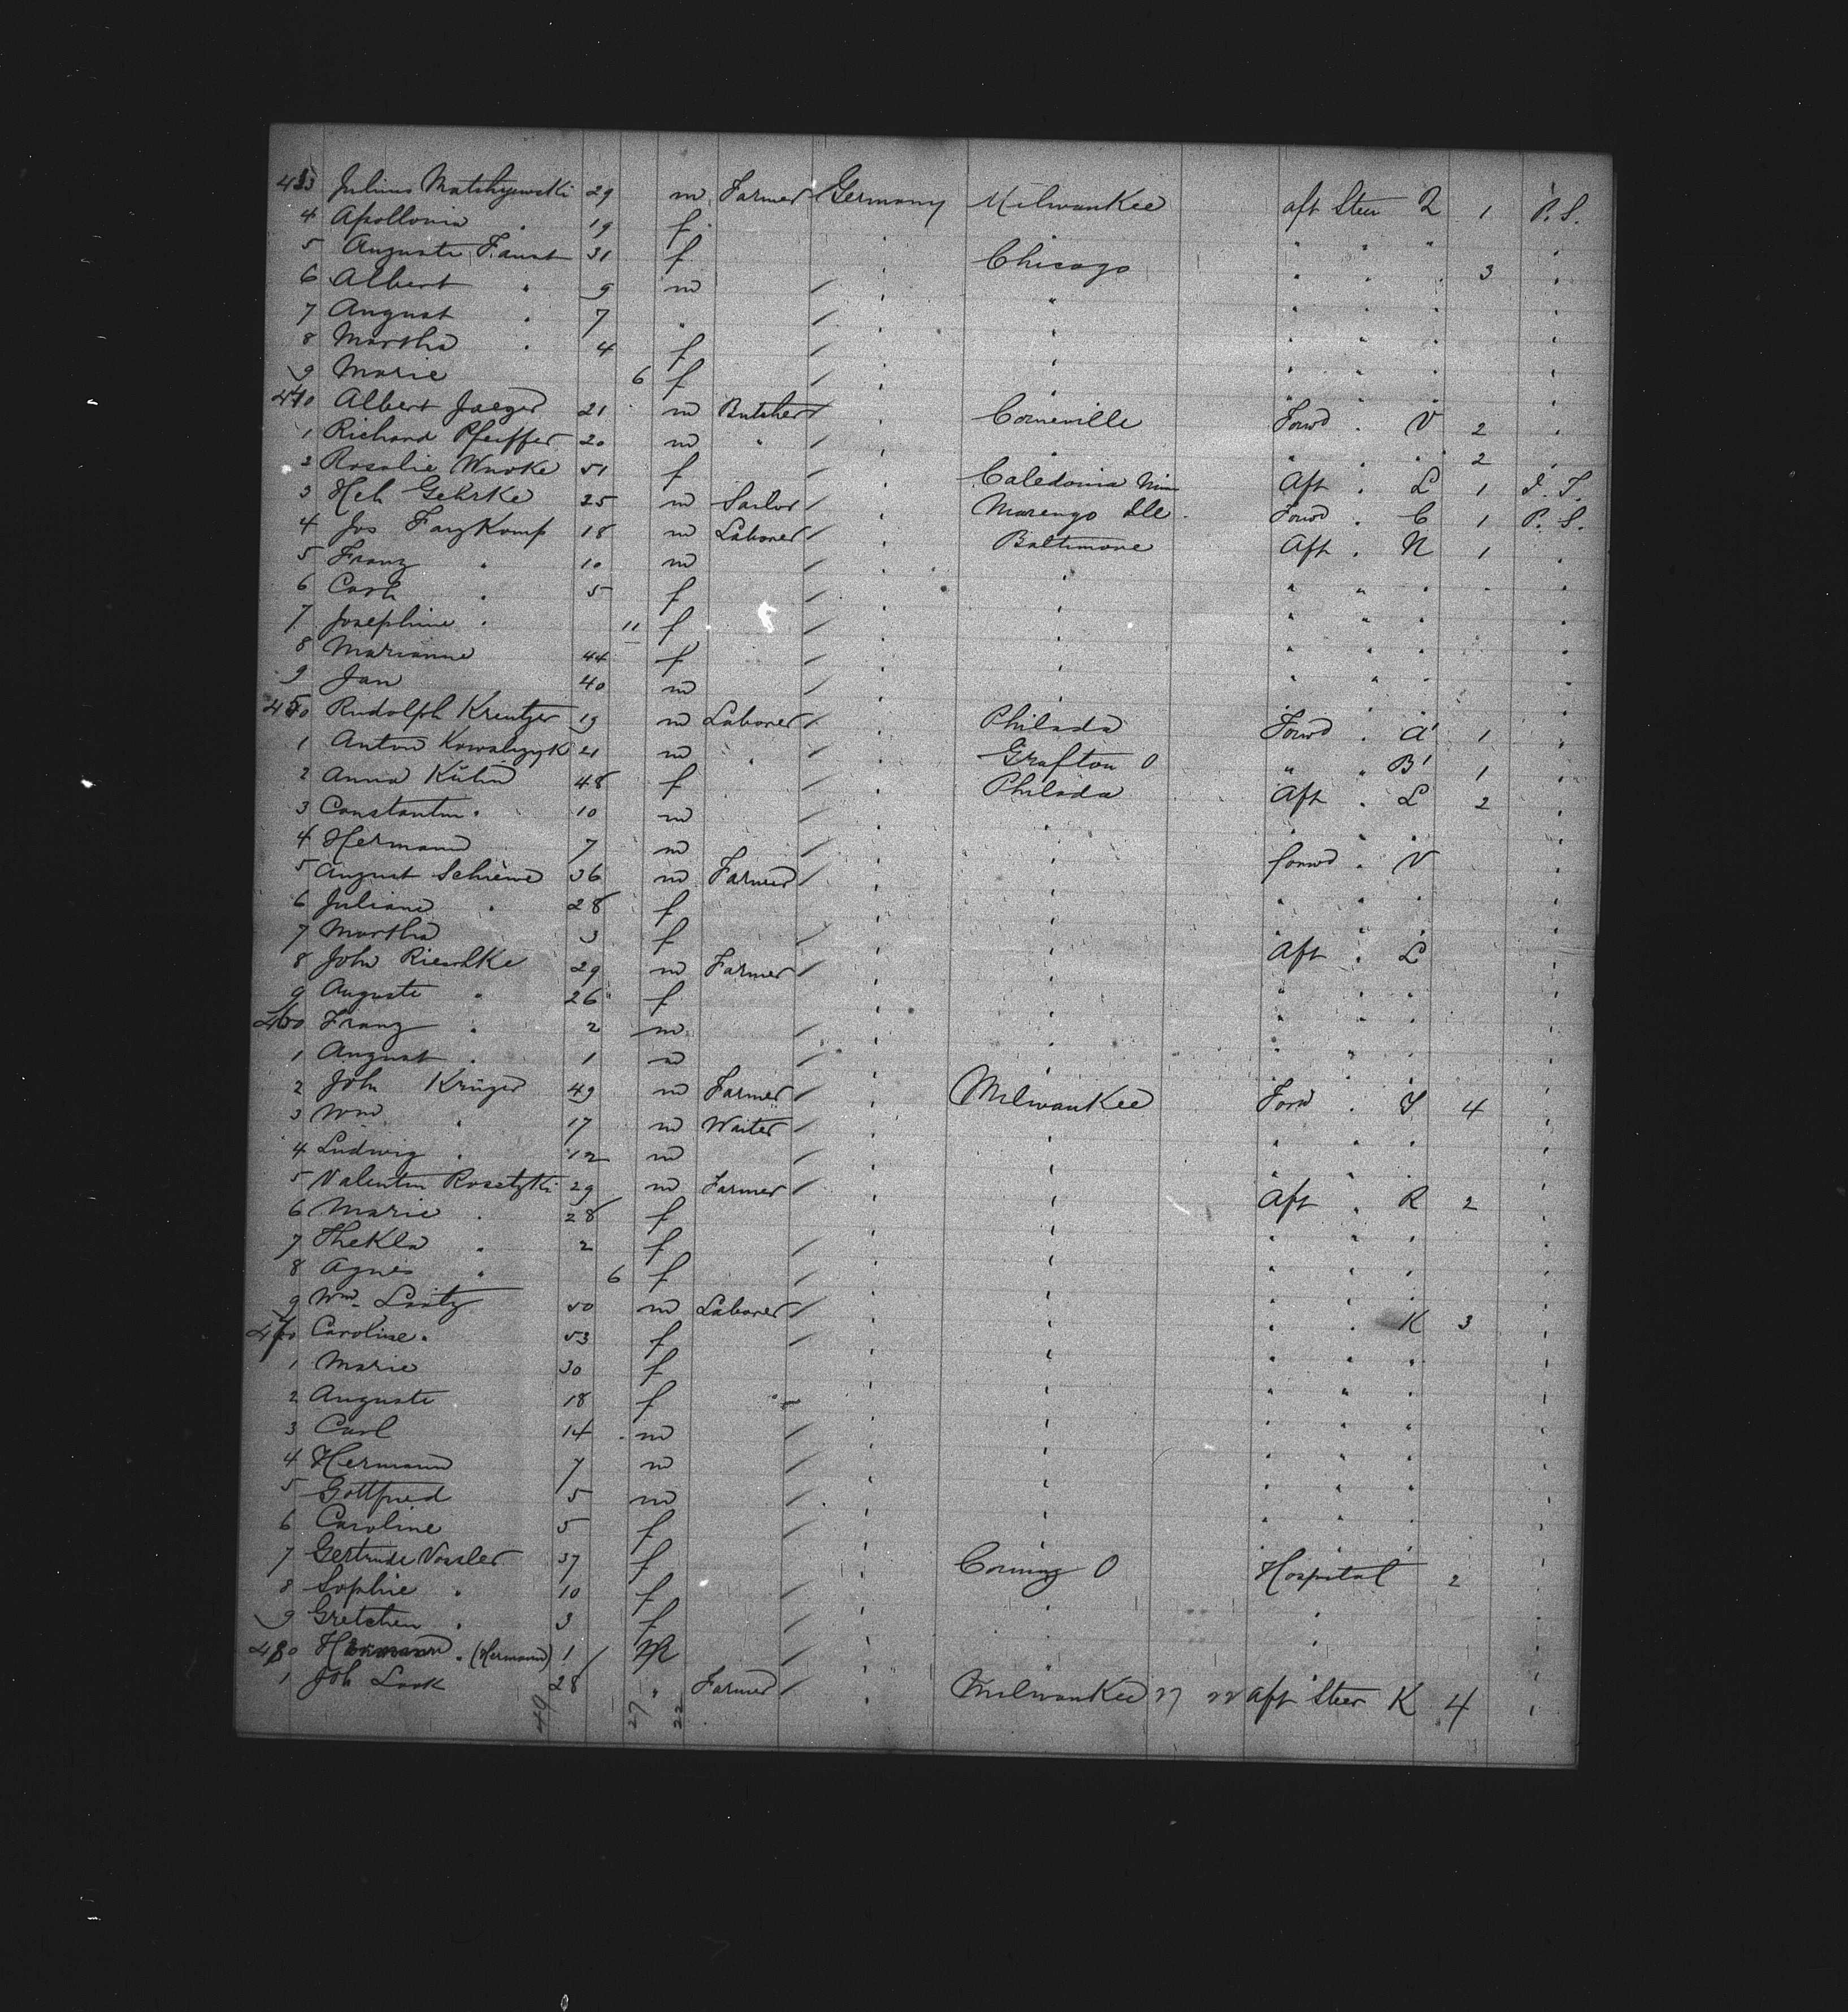 433 Julius Matchzewski 29 m Farmer Germany Milwaukee aft Steer Q 1 P. S.
4 Apollonia " 19 f
5 Auguste Faust 31 f Chicago " " " 3
6 Albert " 9 m / " "
7 August " 7 " / " "
8 Martha " 4 f / " "
9 Marie 6 f / " "
440 Albert Jaeger 21 m Butcher / " Corneville Forwd " V 2
1 Richard Pfeiffer 20 m " / " " " " 2
2 Rosalie 51 f / " Caledonia Min Aft " L 1 I. S.
3 Heh Gehrke 25 m Sailor / " Marengo Ill. Forwd " C 1 P. S.
4 Jos Fangkomp 18 m Laborer / " Baltimore Aft " N 1 "
5 Franz " 10 m / " "
6 Cash " 5 f / " "
7 Josephine " 11 f / " "
8 Marianne 44 f / " "
9 Jan 40 m / " "
450 Rudolph Kreutzer 19 m Laborer / " Philada Forwd " A' 1 "
1 Anton Kowalczyk 21 m " / " Grafton O " " B' 1 "
2 Anna Kühn 48 f / " Philada Aft " L 2 "
3 Constantin " 10 m / " "
4 Hermann 7 m / " " forwd " V
5 August Schieme 36 m Farmer / " "
6 Juliane " 28 f " "
7 Martha 3 f / " " Aft " L
8 John Rieschke 29 m Farmer / " "
9 Auguste " 26 f " "
460 Franz " 2 m / " "
1 August " 1 m / " "
2 Joh Krüger 49 m Farmer / " Milwaukee Forwd " T 4 "
3 Wm " 17 m Waiter / " "
4 Ludwig " 12 m / " "
5 Valentin Rosetzki 29 m Farmer / " " Aft " R 2 "
6 Marie " 28 f " "
7 Thekla " 2 f / " "
8 Agnes " 6 f / " "
9 Wm. Lootz 50 m Laborer / " " " " K 3 "
470 Caroline " 53 f / " "
1 Marie 30 f " "
2 Auguste 18 f " "
3 Carl 14 m / " "
4 Hermann 7 m / " "
5 Gottfried 5 m / " "
6 Caroline 5 f / " "
7 Gertrude Vossler 37 f " Corning O Hospital 2 "
8 Sophie " 10 f / " " "
9 Gretchen " 3 f / " " "
480 Hermann " (Hermann) 1 M / " " "
1 Joh Look 28 " Farmer / " Milwaukee 27 22 aft Steer K 4 "
49 27 22